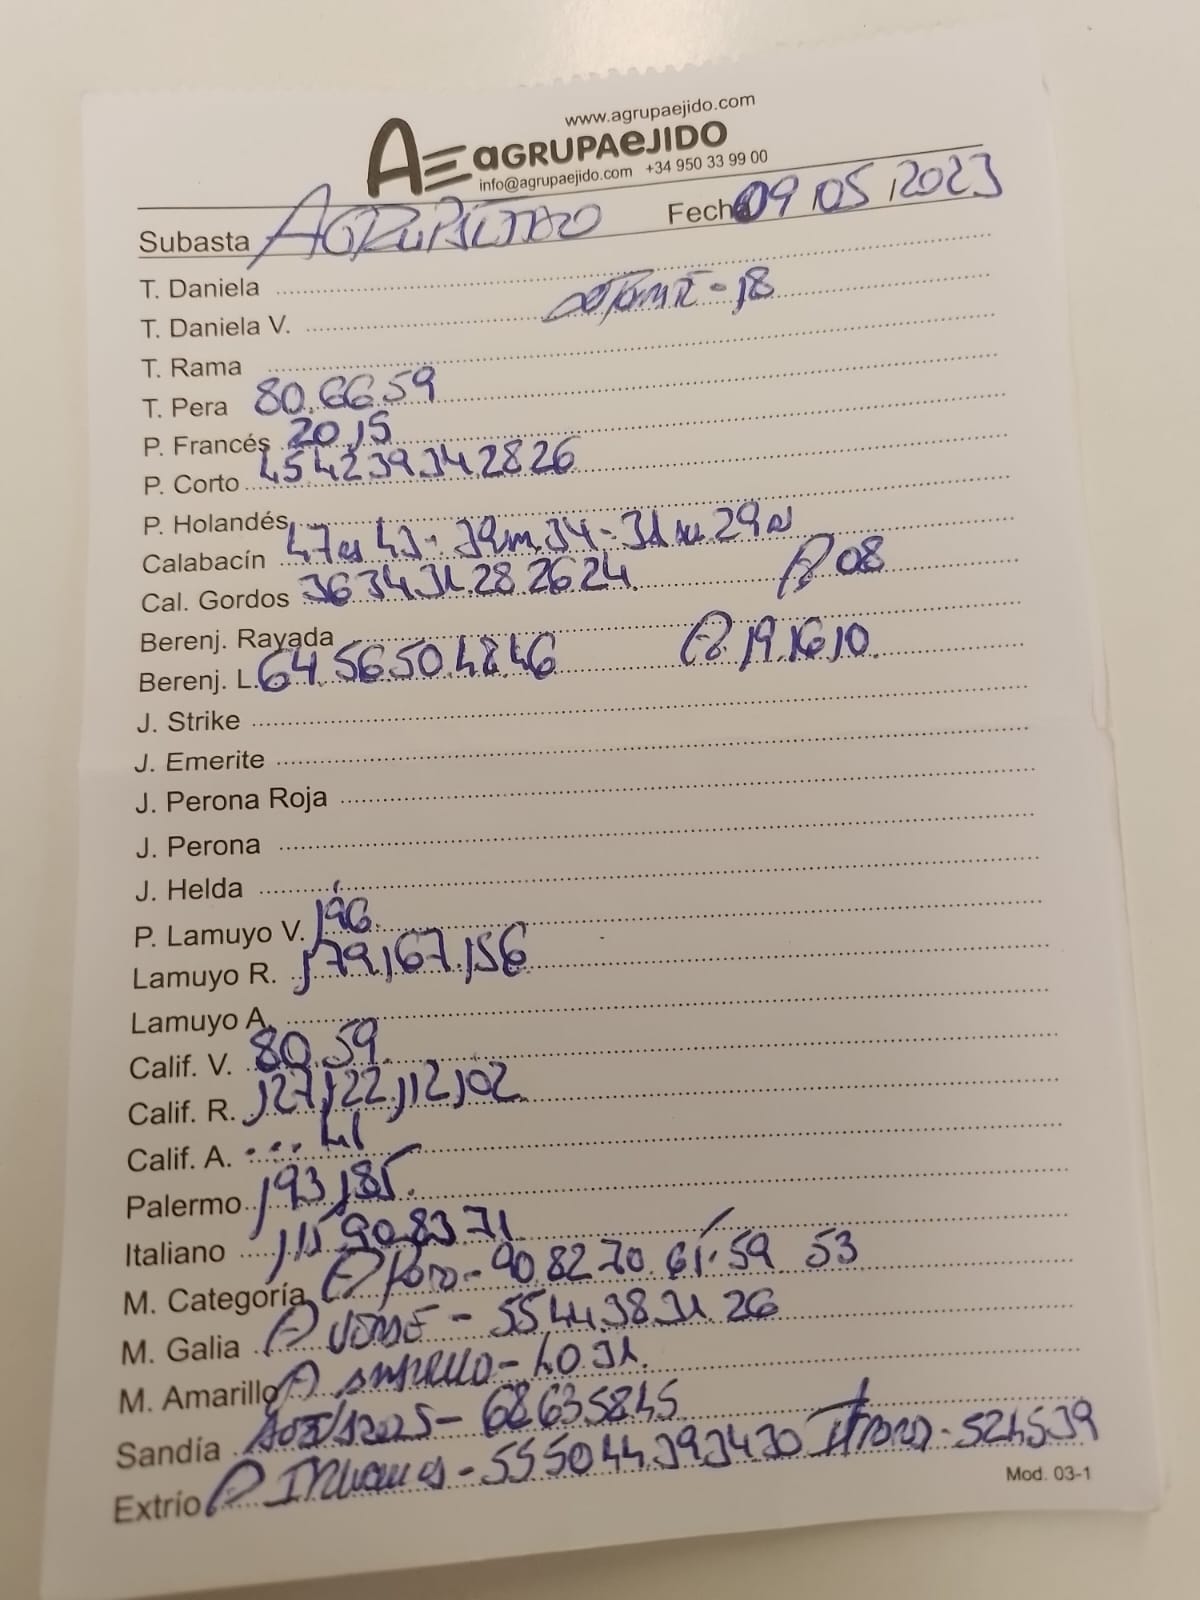 www.agrupaejido.com
AE aGRUPAeJIDO
info@agrupaejido.com +34 950 33 99 00
Subasta AGRUPAEJIDO Fecha 09,05,2023
T. Daniela
T. Daniela V. - 18
T. Rama
T. Pera 80.66.59
P. Francés 20,15
P. Corto 45 42 39.34.28 26
P. Holandés
Calabacín 47 43 - 39 m 34 - 31 29
Cal. Gordos 36 34 31.28.26 24. 08
Berenj. Rayada
Berenj. L. 64.56.50.48.46 19.16,10.
J. Strike
J. Emerite
J. Perona Roja
J. Perona
J. Helda
P. Lamuyo V. 196.
Lamuyo R. 179,167.156
Lamuyo A.
Calif. V. 80.59.
Calif. R. 127,122,112,102.
Calif. A. 41
Palermo 193,185.
Italiano 115 90.83 71
M. Categoría Toro - 90.82.70.61.59 53
M. Galia VERDE - 55 44.38.31.26
M. Amarillo AMARILLO - 40 31.
Sandía - 68 63 58 45
Extrío - 55 50 44.39 34 30 - 52 45 39
Mod. 03-1